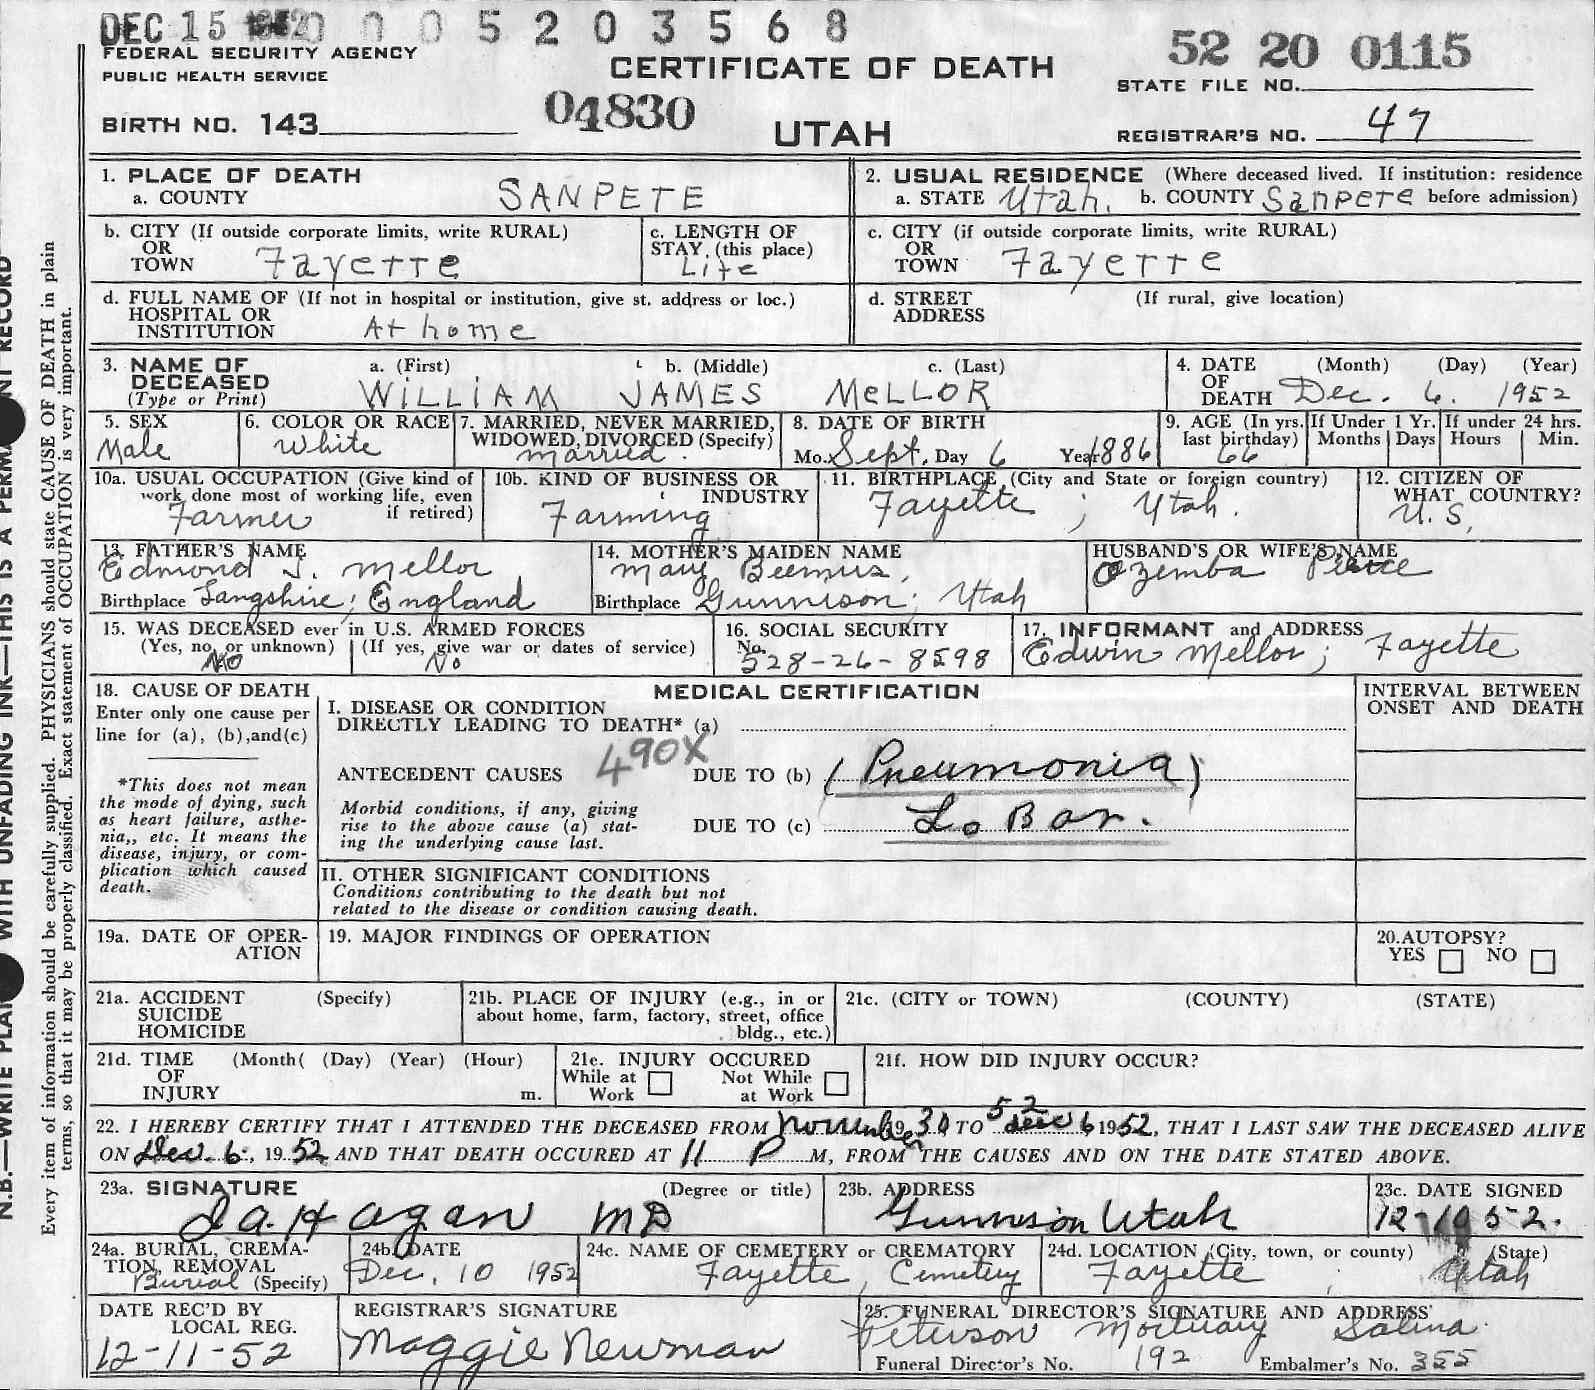 DEC 15 1952 0 0 0 5 2 0 3 5 6 8
FEDERAL SECURITY AGENCY
PUBLIC HEALTH SERVICE
CERTIFICATE OF DEATH
52 20 0115
STATE FILE NO.
BIRTH NO. 143
04830
UTAH
REGISTRAR'S NO. 47
1. PLACE OF DEATH
a. COUNTY SANPETE
2. USUAL RESIDENCE (Where deceased lived. If institution: residence
a. STATE Utah. b. COUNTY Sanpete before admission)
b. CITY (If outside corporate limits, write RURAL)
OR
TOWN Fayette
c. LENGTH OF
STAY (this place)
Life
c. CITY (if outside corporate limits, write RURAL)
OR
TOWN Fayette
d. FULL NAME OF (If not in hospital or institution, give st. address or loc.)
HOSPITAL OR
INSTITUTION At home
d. STREET (If rural, give location)
ADDRESS
3. NAME OF DECEASED
(Type or Print)
a. (First) b. (Middle) c. (Last)
WILLIAM JAMES MELLOR
4. DATE (Month) (Day) (Year)
OF
DEATH Dec. 6. 1952
5. SEX
Male
6. COLOR OR RACE
White
7. MARRIED, NEVER MARRIED,
WIDOWED, DIVORCED (Specify)
Married.
8. DATE OF BIRTH
Mo. Sept. Day 6 Year 1886
9. AGE (In yrs. last birthday)
66
If Under 1 Yr.
Months Days
If under 24 hrs.
Hours Min.
10a. USUAL OCCUPATION (Give kind of
work done most of working life, even
if retired)
Farmer
10b. KIND OF BUSINESS OR
INDUSTRY
Farming
11. BIRTHPLACE (City and State or foreign country)
Fayette ; Utah.
12. CITIZEN OF
WHAT COUNTRY?
U.S.
13. FATHER'S NAME
Edmond J. Mellor
Birthplace Langshire; England
14. MOTHER'S MAIDEN NAME
Mary Beemus.
Birthplace Gunnison; Utah
HUSBAND'S OR WIFE'S NAME
Ozemba
15. WAS DECEASED ever in U.S. ARMED FORCES
(Yes, no, or unknown) (If yes, give war or dates of service)
No No
16. SOCIAL SECURITY
No.
528-26-8598
17. INFORMANT and ADDRESS
Edwin Mellor; Fayette
18. CAUSE OF DEATH
Enter only one cause per
line for (a), (b), and (c)
*This does not mean
the mode of dying, such
as heart failure, asthe-
nia,, etc. It means the
disease, injury, or com-
plication which caused
death.
MEDICAL CERTIFICATION
I. DISEASE OR CONDITION
DIRECTLY LEADING TO DEATH* (a)
490X
ANTECEDENT CAUSES DUE TO (b) (Pneumonia)
Morbid conditions, if any, giving
rise to the above cause (a) stat-
ing the underlying cause last.
DUE TO (c) Lo Bar.
II. OTHER SIGNIFICANT CONDITIONS
Conditions contributing to the death but not
related to the disease or condition causing death.
INTERVAL BETWEEN
ONSET AND DEATH
19a. DATE OF OPER-
ATION
19. MAJOR FINDINGS OF OPERATION
20. AUTOPSY?
YES NO
21a. ACCIDENT (Specify)
SUICIDE
HOMICIDE
21b. PLACE OF INJURY (e.g., in or
about home, farm, factory, street, office
bldg., etc.)
21c. (CITY or TOWN) (COUNTY) (STATE)
21d. TIME (Month( (Day) (Year) (Hour)
OF
INJURY m.
21e. INJURY OCCURED
While at Work
Not While at Work
21f. HOW DID INJURY OCCUR?
22. I HEREBY CERTIFY THAT I ATTENDED THE DECEASED FROM November 19 30 TO 52 Dec 6 1952, THAT I LAST SAW THE DECEASED ALIVE
ON Dec. 6, 1952 AND THAT DEATH OCCURED AT 11 P M, FROM THE CAUSES AND ON THE DATE STATED ABOVE.
23a. SIGNATURE (Degree or title)
Hagan MD
23b. ADDRESS
Gunnison Utah
23c. DATE SIGNED
12-10 52.
24a. BURIAL, CREMA-
TION, REMOVAL
Burial (Specify)
24b. DATE
Dec. 10 1952
24c. NAME OF CEMETERY or CREMATORY
Fayette, Cemetery
24d. LOCATION (City, town, or county) (State)
Fayette ; Utah
DATE REC'D BY
LOCAL REG.
12-11-52
REGISTRAR'S SIGNATURE
Maggie Newman
25. FUNERAL DIRECTOR'S SIGNATURE AND ADDRESS
Peterson Mortuary Salina.
Funeral Director's No. 192 Embalmer's No. 355
Every item of information should be carefully supplied. PHYSICIANS should state CAUSE OF DEATH in plain
terms, so that it may be properly classified. Exact statement of OCCUPATION is very important.